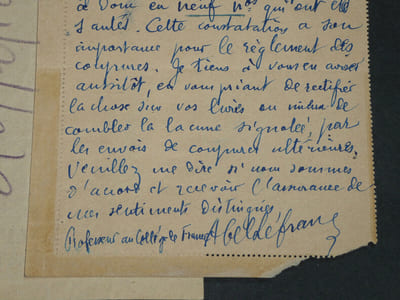 à Dom en neuf nos qui ont été
sautés. Cette constatation a son
importance pour le règlement des
coupures. Je tiens à vous en aviser
aussitôt, en vous priant de rectifier
la chose sur vos livres ou même de
combler la lacune signalée, par
les envois de coupures ultérieures.
Veuillez me dire si nous sommes
d'accord et recevoir l'assurance de
mes sentiments distingués
Professeur au Collège de France Abel Lefranc